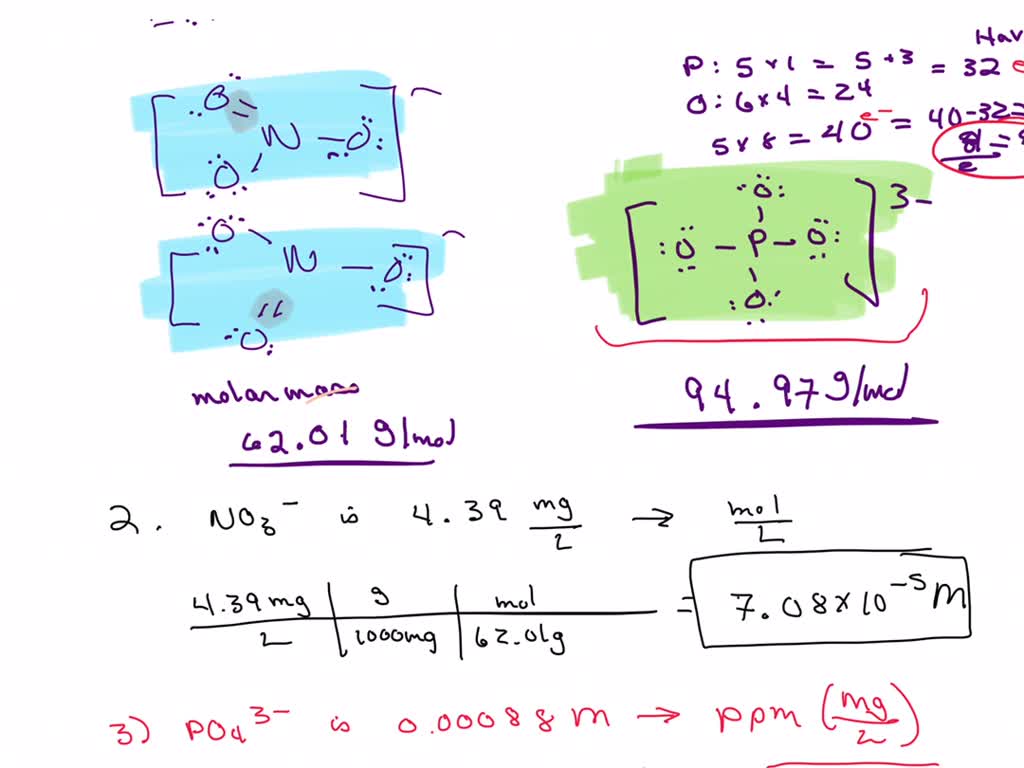 Hav
P: 5 × 1 = 5 + 3 = 32 e
O: 6 × 4 = 24
5 × 8 = 40 e⁻ = 40-32=
8/2 =
[O = N - O O] ⁻
[O N - O O] ⁻
[O - P - O O O] 3-
molar mass
62.01 g/mol
94.97 g/mol
2. NO3⁻ is 4.39 mg/L → mol/L
4.39 mg/L | g/1000mg | mol/62.01g = 7.08 × 10⁻⁵ M
3) PO4³⁻ is 0.00088 M → ppm (mg/L)